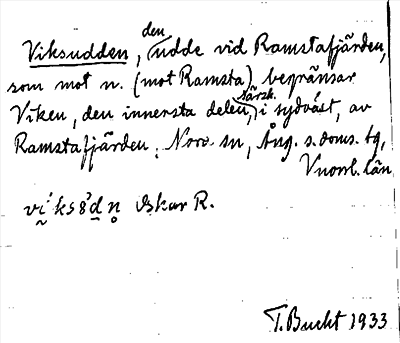 Viksudden, den udde vid Ramstafjärden,
som mot n. (mot Ramsta) begränsar
Viken, den innersta delen, särsk. i sydväst, av
Ramstafjärden. Nora sn, Ång. s. doms. tg,
Vnorrl. län
Oskar R.
T. Bucht 1933